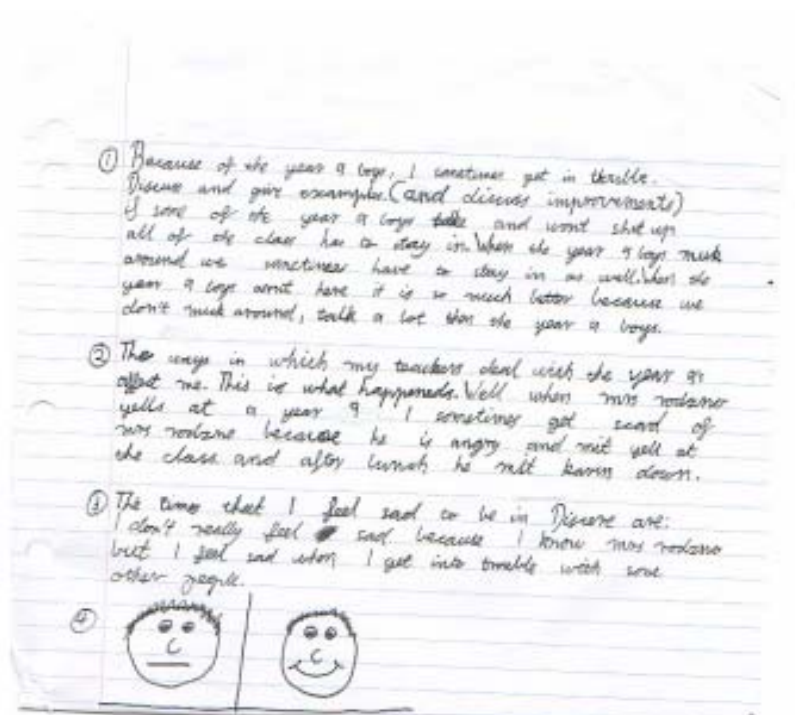 ① Because of the year 9 boys, I sometimes get in trouble.
Discuss and give examples. (and discuss improvements)
if some of the year 9 boys talk and wont shut up
all of the class has to stay in. When the year 9 boys muck
around we sometimes have to stay in as well. When the
year 9 boys arnt here it is so much better because we
don't muck around, talk a lot then the year 9 boys.
② The ways in which my teachers deal with the year 9s
affect me. This is what happeneds. Well when mrs
yells at a year 9 I sometimes get scard of
mrs because he is angry and mit yell at
the class and after lunch he mit down.
③ The times that I feel sad to be in are:
I don't really feel sad because I know mrs
but I feel sad when I get into trouble with some
other people.
④